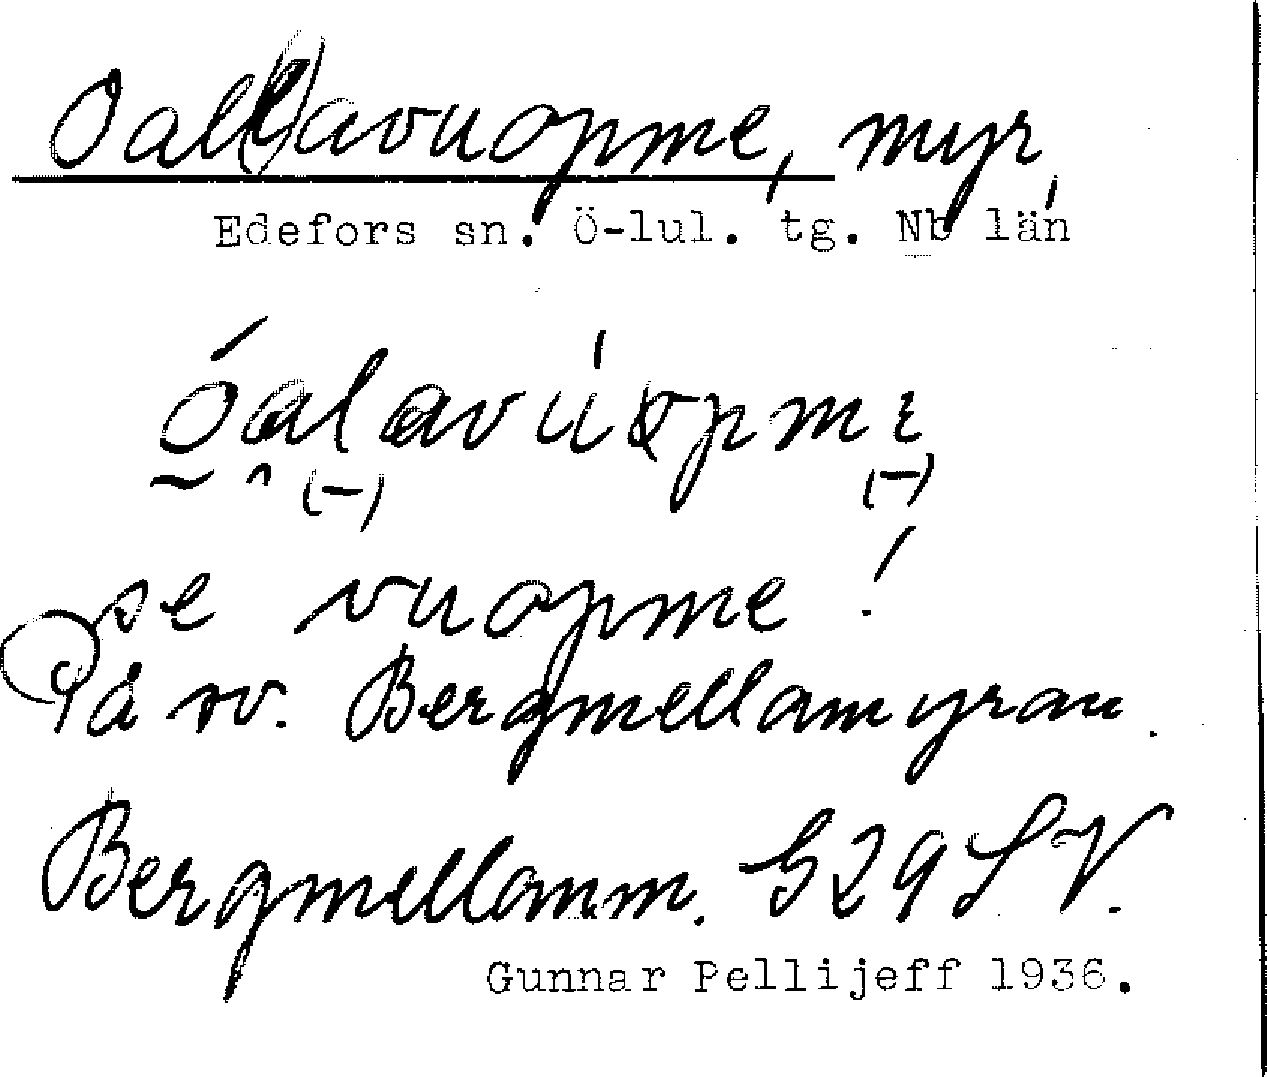 Oal(l)avuopme, myr,
Edefors sn. Ö-lul. tg. Nb län
óalavúopmɛ
(-) (-)
se vuopme!
På sv. Bergmellamyran.
Bergmellanm. G29SV.
Gunnar Pellijeff 1936.